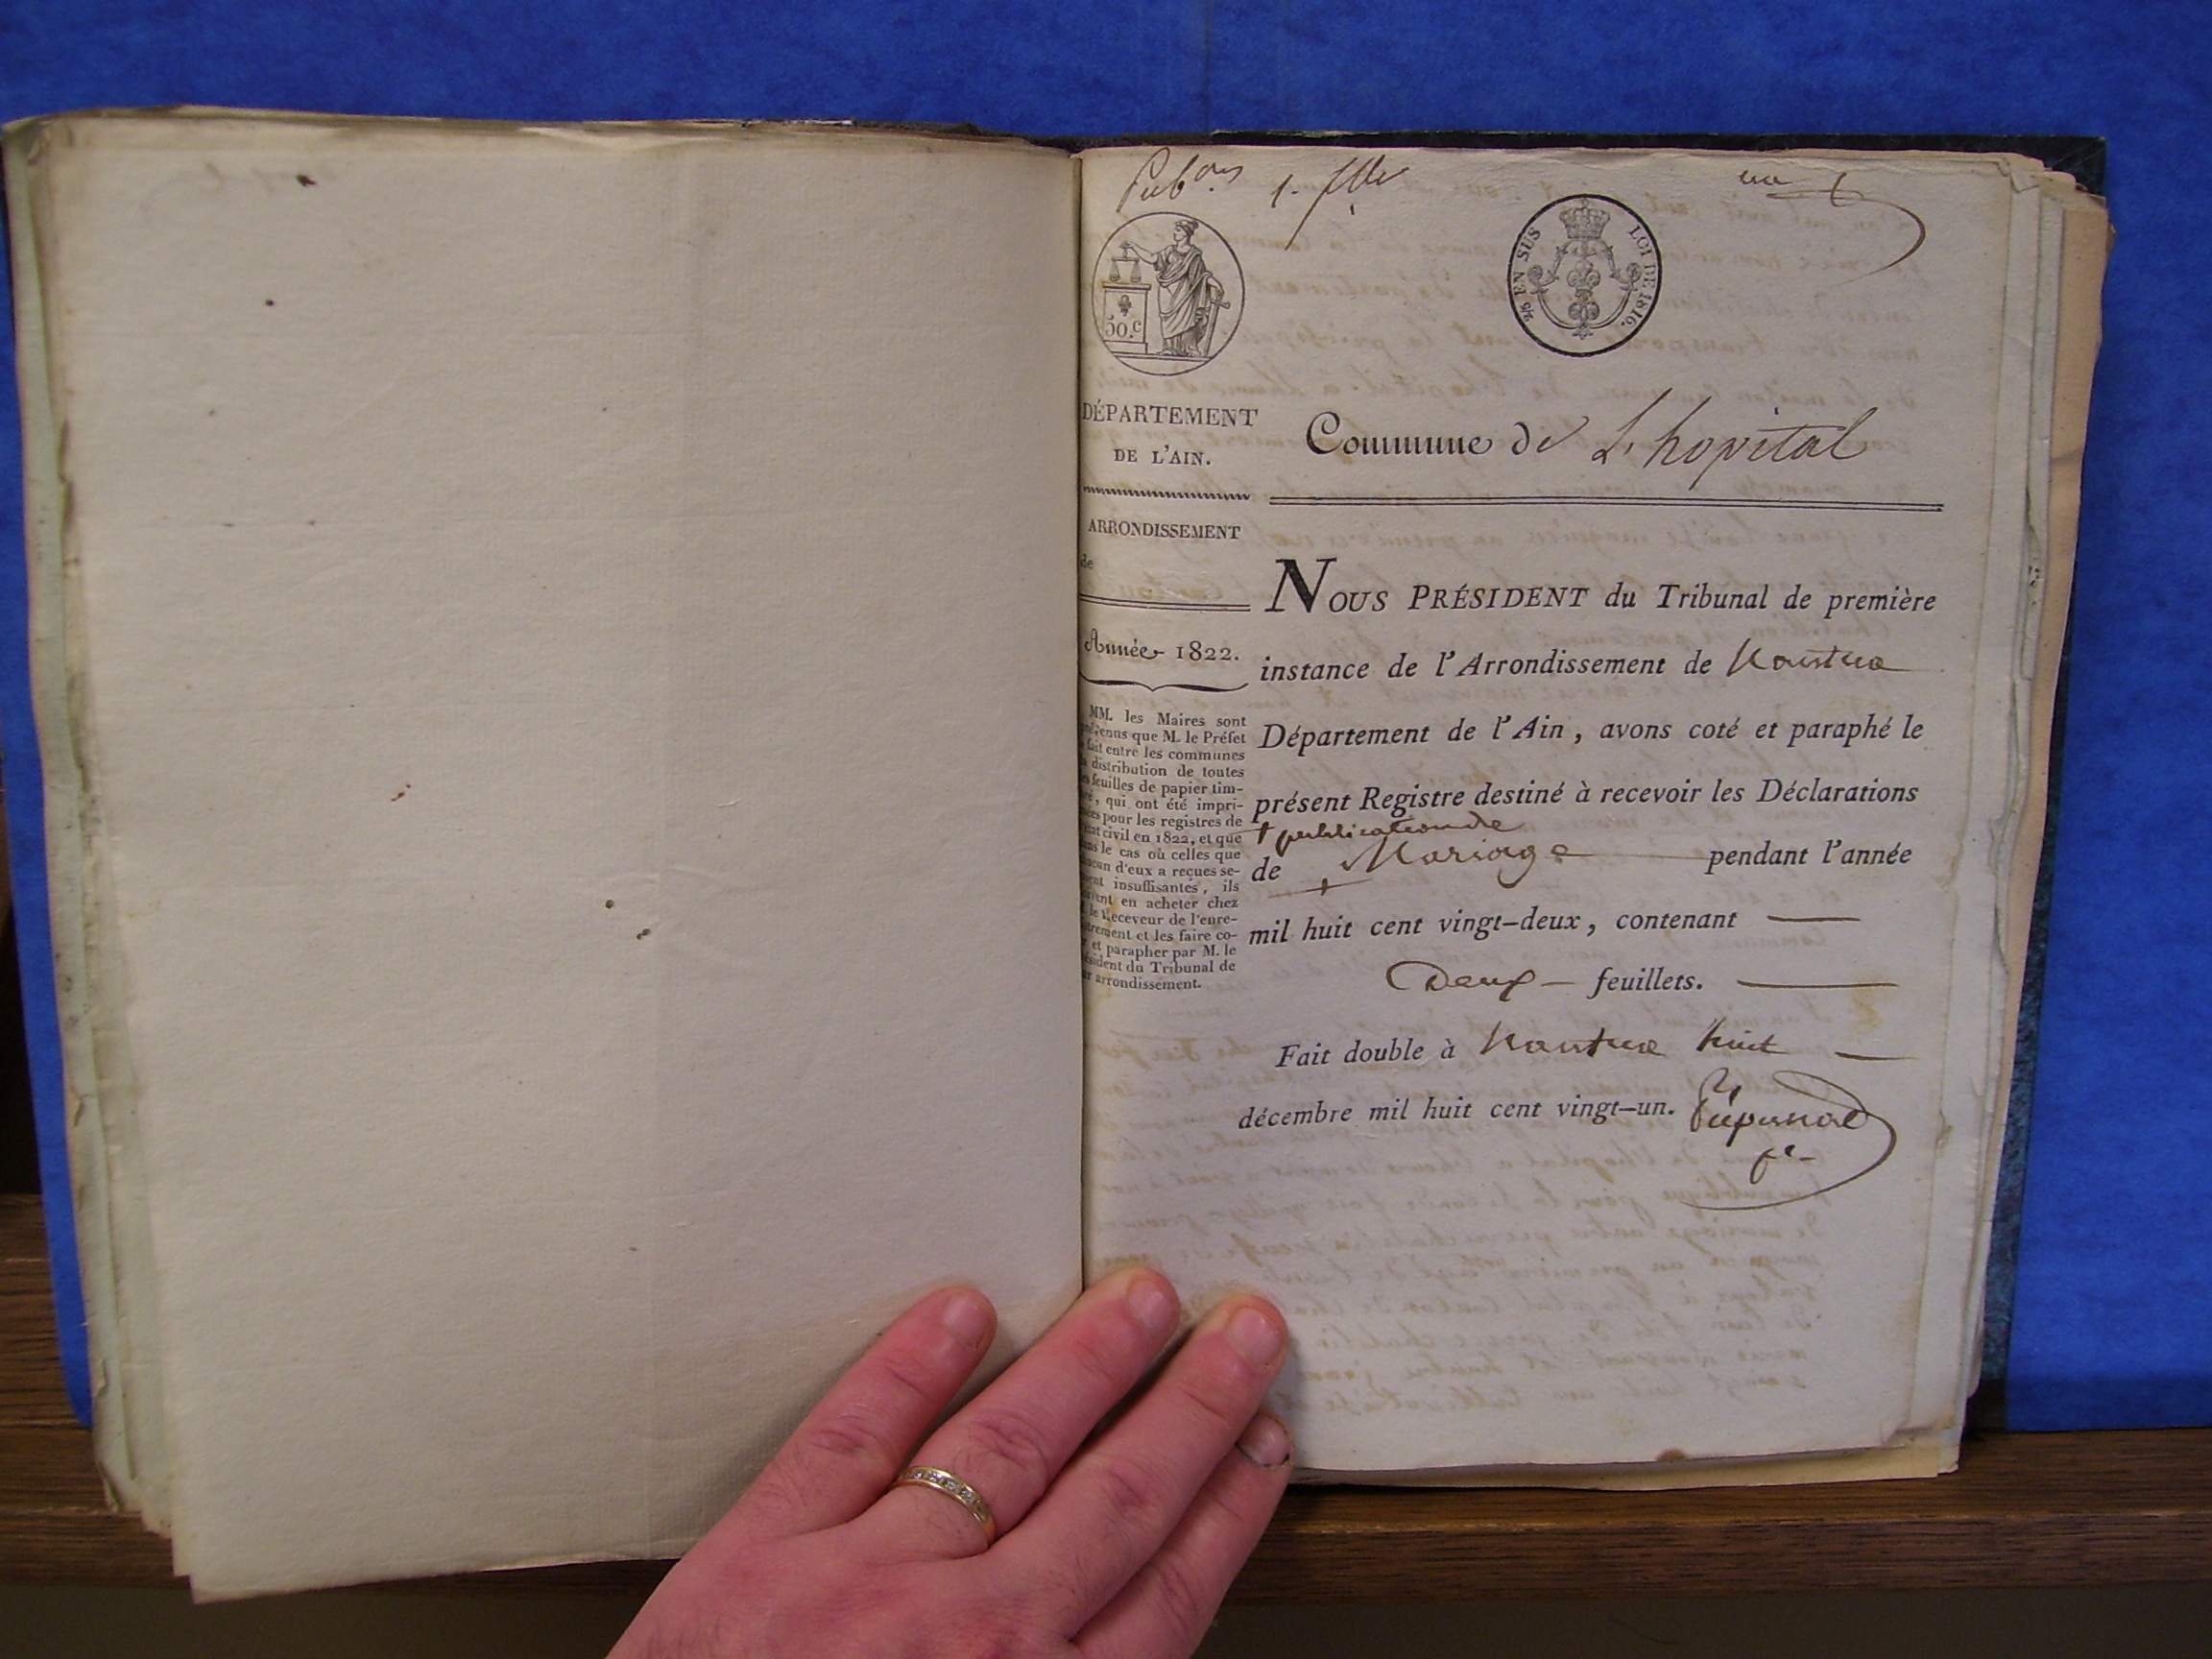 Pub.ons 1.
un
50.c
2/5 EN SUS LOI DE 1816.
DÉPARTEMENT
DE L'AIN.
Commune de L'hopital
ARRONDISSEMENT
de
Année 1822.
MM. les Maires sont
que M. le Préfet
fait entre les communes
distribution de toutes
feuilles de papier tim-
, qui ont été impri-
pour les registres de
civil en 1822, et que
le cas où celles que
d'eux a reçues se-
insuffisantes, ils
en acheter chez
le Receveur de l'enre-
et les faire co-
et parapher par M. le
du Tribunal de
arrondissement.
NOUS PRÉSIDENT du Tribunal de première
instance de l'Arrondissement de Nantua
Département de l'Ain, avons coté et paraphé le
présent Registre destiné à recevoir les Déclarations
+ publication de
de + Mariage pendant l'année
mil huit cent vingt-deux, contenant —
Deux — feuillets. —
Fait double à Nantua huit —
décembre mil huit cent vingt-un.